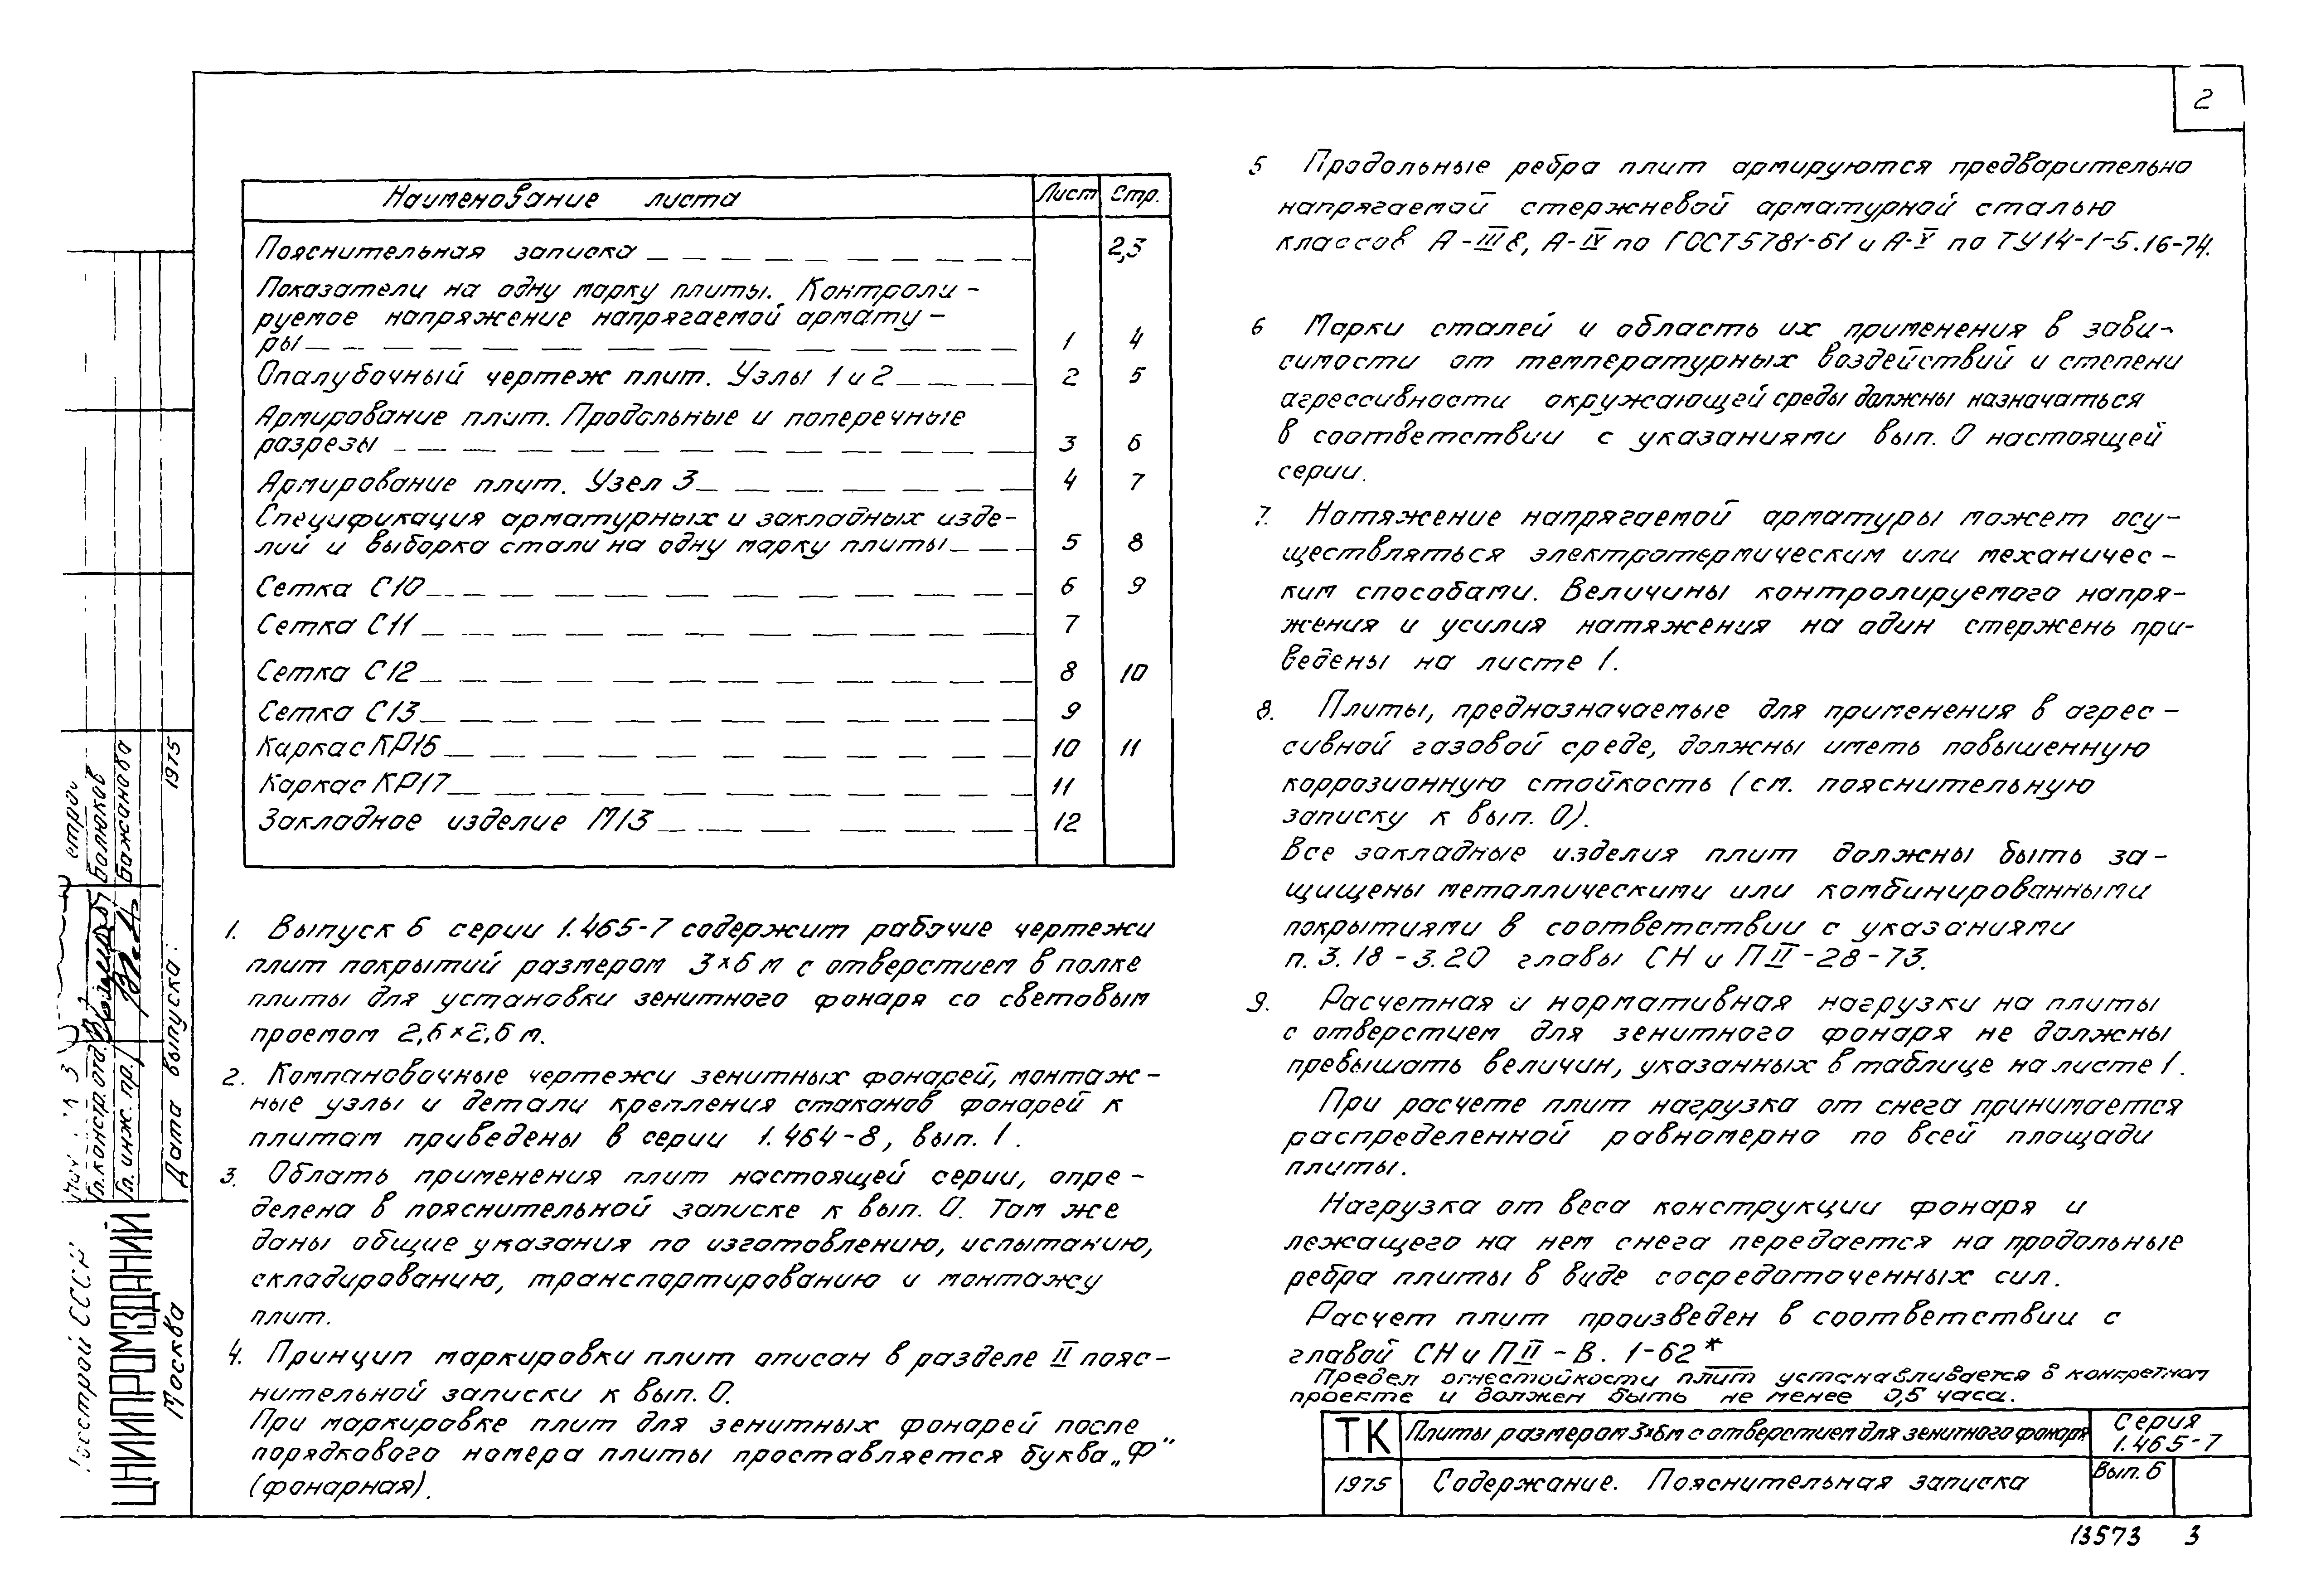 2
Наименование листа Лист Стр.
Пояснительная записка 2,3
Показатели на одну марку плиты. Контроли-
руемое напряжение напрягаемой армату-
ры 1 4
Опалубочный чертеж плит. Узлы 1 и 2 2 5
Армирование плит. Продольные и поперечные
разрезы 3 6
Армирование плит. Узел 3 4 7
Спецификация арматурных и закладных изде-
лий и выборка стали на одну марку плиты 5 8
Сетка С10 6 9
Сетка С11 7
Сетка С12 8 10
Сетка С13 9
Каркас КР16 10 11
Каркас КР17 11
Закладное изделие М13 12
1. Выпуск 6 серии 1.465-7 содержит рабочие чертежи
плит покрытий размером 3×6 м с отверстием в полке
плиты для установки зенитного фонаря со световым
проемом 2,6×2,6 м.
2. Компановочные чертежи зенитных фонарей, монтаж-
ные узлы и детали крепления стаканов фонарей к
плитам приведены в серии 1.464-8, вып. 1.
3. Облать применения плит настоящей серии, опре-
делена в пояснительной записке к вып. 0. Там же
даны общие указания по изготовлению, испытанию,
складированию, транспортированию и монтажу
плит.
4. Принцип маркировки плит описан в разделе II пояс-
нительной записки к вып. 0.
При маркировке плит для зенитных фонарей после
порядкового номера плиты проставляется буква „Ф"
(фонарная).
5 Продольные ребра плит армируются предварительно
напрягаемой стержневой арматурной сталью
классов А-IIIв, А-IV по ГОСТ 5781-61 и А-V по ТУ14-1-5.16-74.
6 Марки сталей и область их применения в зави-
симости от температурных воздействий и степени
агрессивности окружающей среды должны назначаться
в соответствии с указаниями вып. 0 настоящей
серии.
7. Натяжение напрягаемой арматуры может осу-
ществляться электротермическим или механичес-
ким способами. Величины контролируемого напря-
жения и усилия натяжения на один стержень при-
ведены на листе 1.
8. Плиты, предназначаемые для применения в агрес-
сивной газовой среде, должны иметь повышенную
коррозионную стойкость (см. пояснительную
записку к вып. 0).
Все закладные изделия плит должны быть за-
щищены металлическими или комбинированными
покрытиями в соответствии с указаниями
п. 3.18-3.20 главы СН и П II-28-73.
9. Расчетная и нормативная нагрузки на плиты
с отверстием для зенитного фонаря не должны
превышать величин, указанных в таблице на листе 1.
При расчете плит нагрузка от снега принимается
распределенной равномерно по всей площади
плиты.
Нагрузка от веса конструкции фонаря и
лежащего на нем снега передается на продольные
ребра плиты в виде сосредоточенных сил.
Расчет плит произведен в соответствии с
главой СН и П II-В. 1-62*
Предел огнестойкости плит устанавливается в конкретном
проекте и должен быть не менее 0,5 часа.
ТК Плиты размером 3×6м с отверстием для зенитного фонаря Серия
1.465-7
1975 Содержание. Пояснительная записка Вып. 6
13573 3
Госстрой СССР
ЦНИИПРОМЗДАНИЙ
Москва
Гл. констр. отд. Болюков
Гл. инж. пр. Бажанова
Дата выпуска: 1975